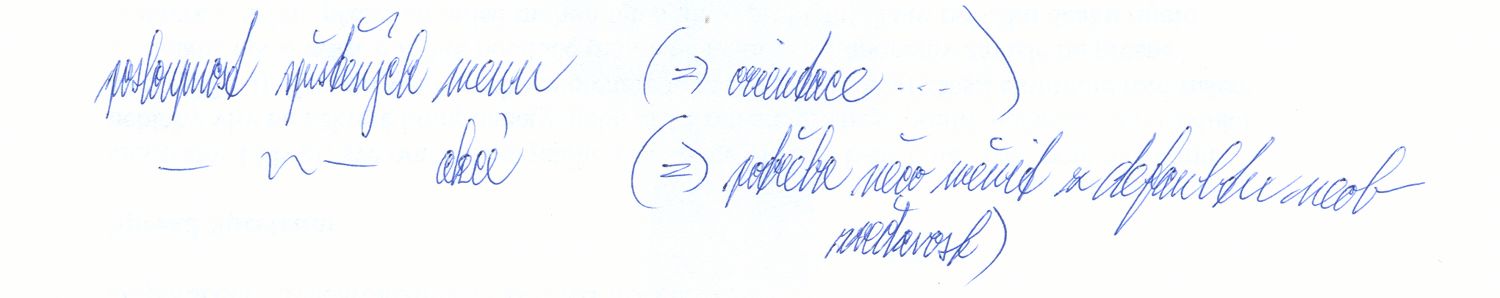 posloupnost spuštěných menu (=> orientace - - )
— " — akcí (=> potřeba něco měnit z defaultu neob